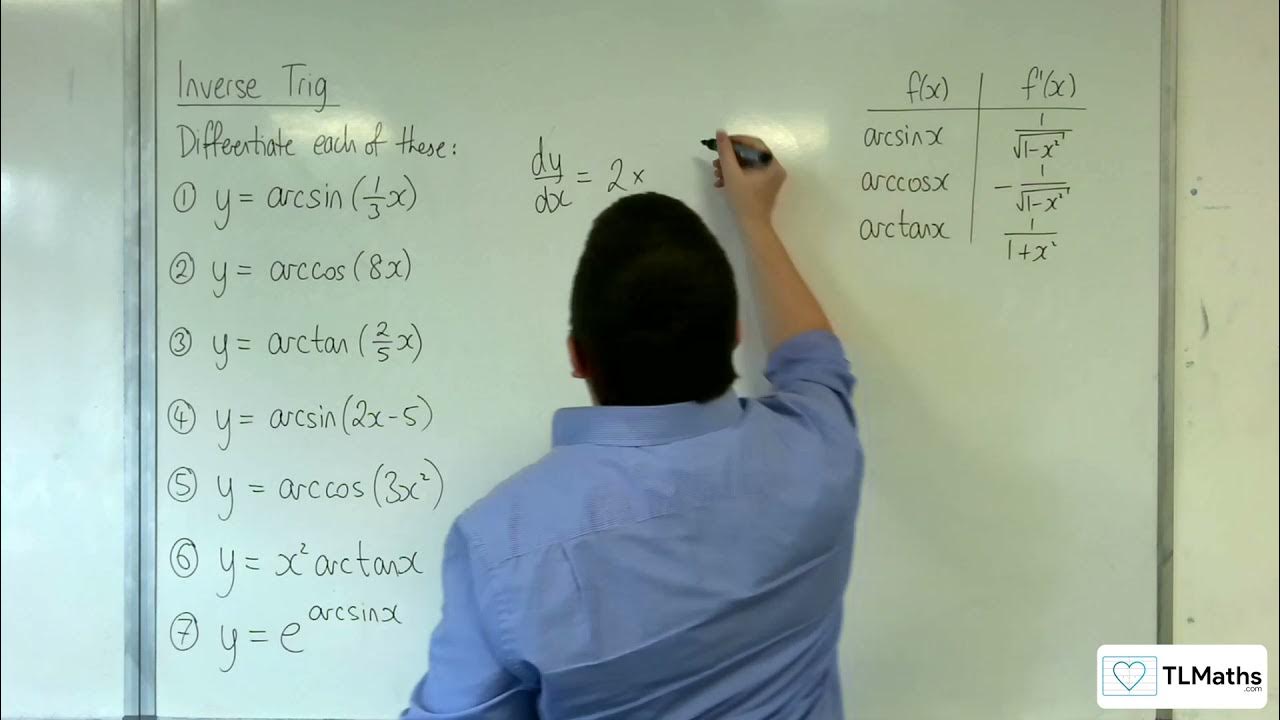 Inverse Trig
Differentiate each of these:
① y = arcsin (1/3 x)
② y = arccos (8x)
③ y = arctan (2/5 x)
④ y = arcsin (2x-5)
⑤ y = arccos (3x²)
⑥ y = x² arctanx
⑦ y = e^arcsinx
dy/dx = 2x
f(x) f'(x)
arcsinx 1/√(1-x²)
arccosx -1/√(1-x²)
arctanx 1/(1+x²)
TLMaths
.com